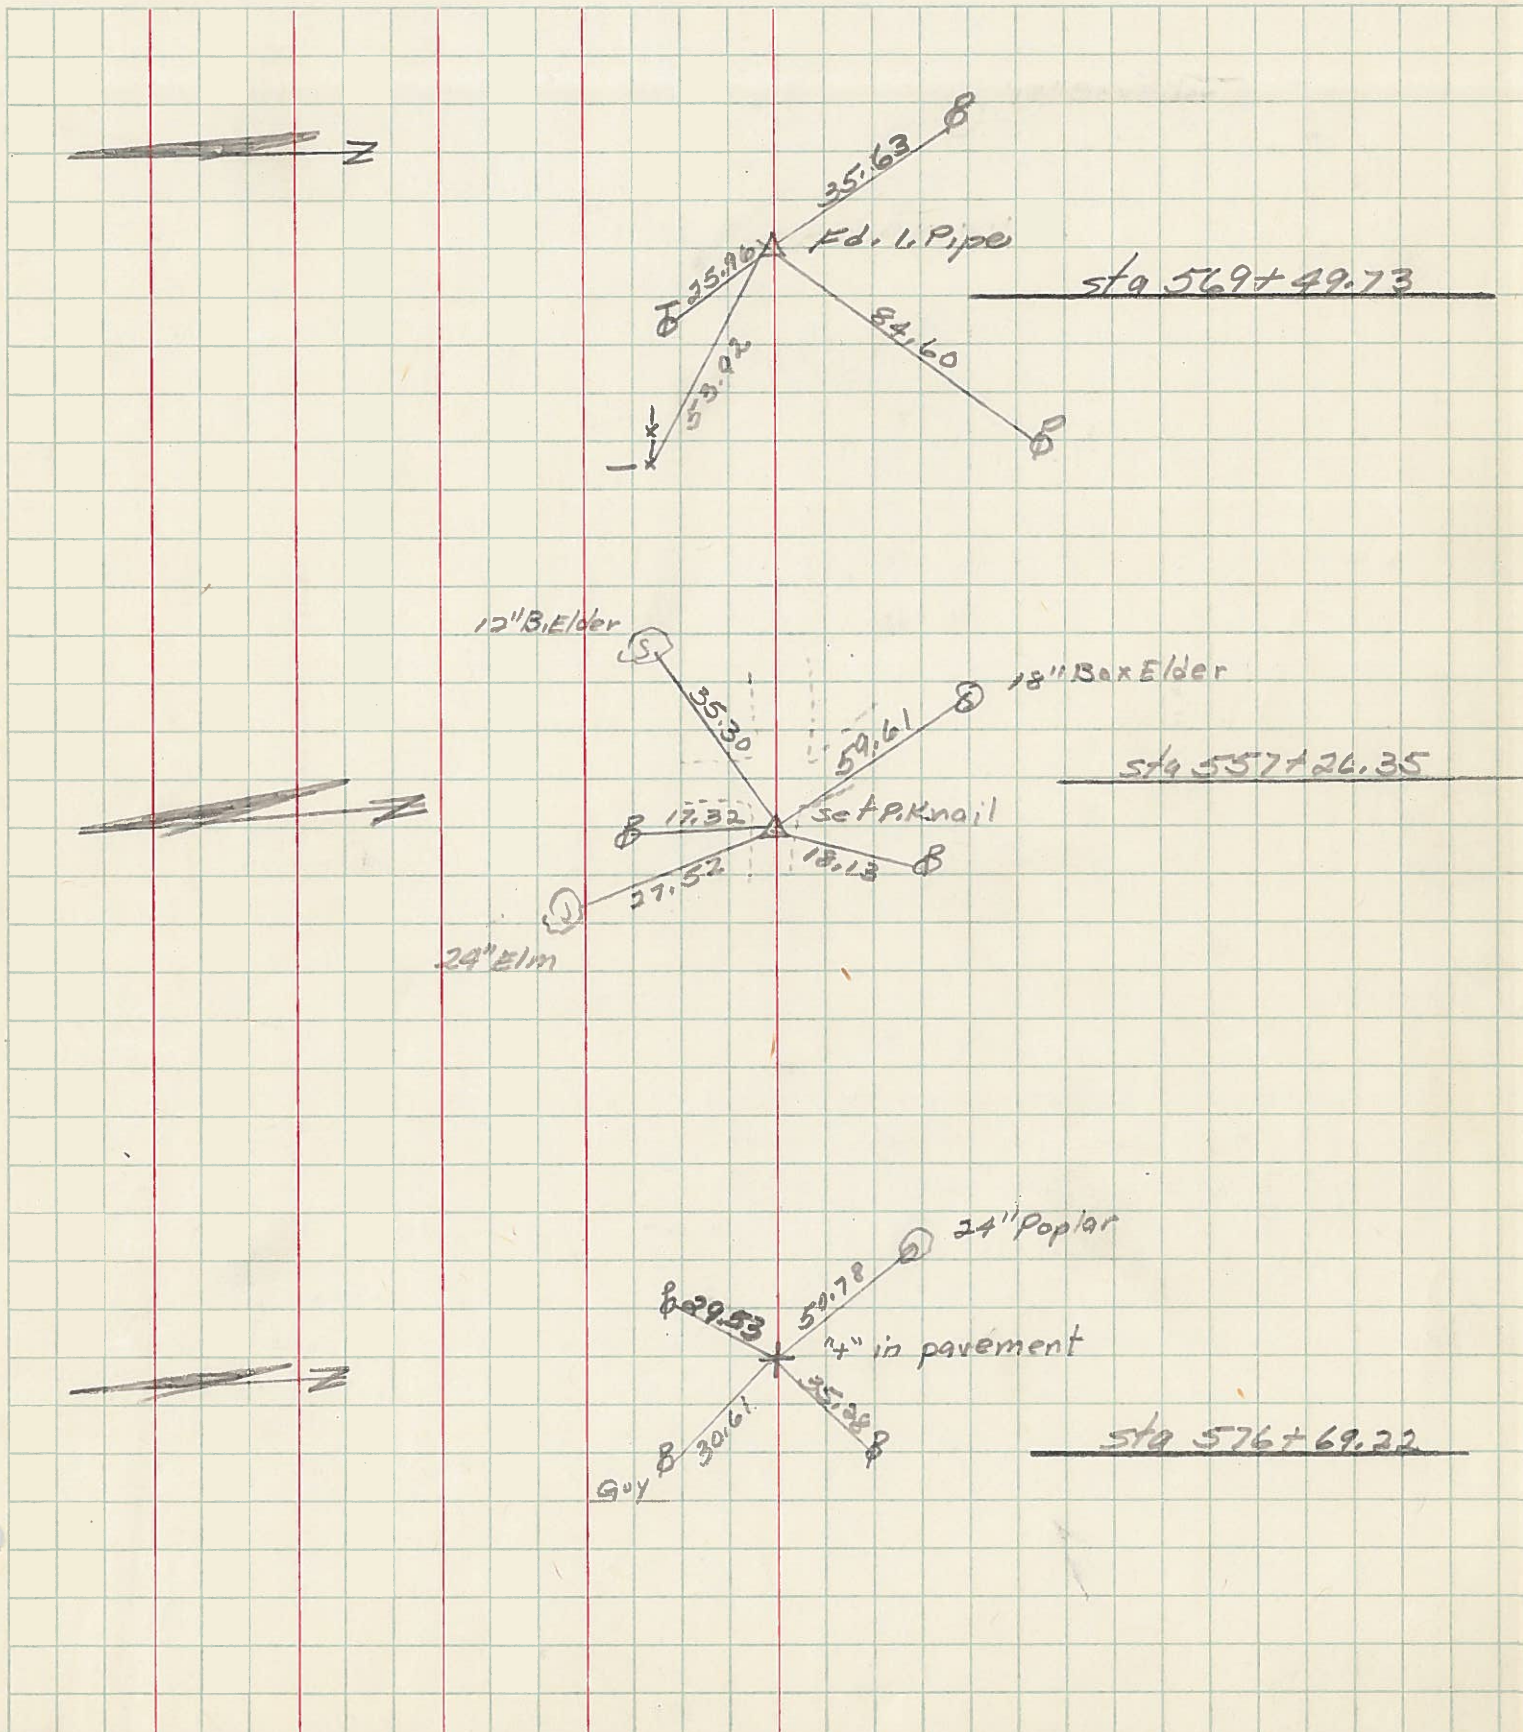 N
35.63
Fd. I. Pipe
25.96
sta 569+49.73
84.60
53.92
12" B. Elder
18" Box Elder
35.30
59.61
sta 557+26.35
N
17.32
set P.K nail
18.13
27.52
24" Elm
24" Poplar
29.53
50.78
"+" in pavement
N
35.28
30.61
sta 576+69.22
Guy